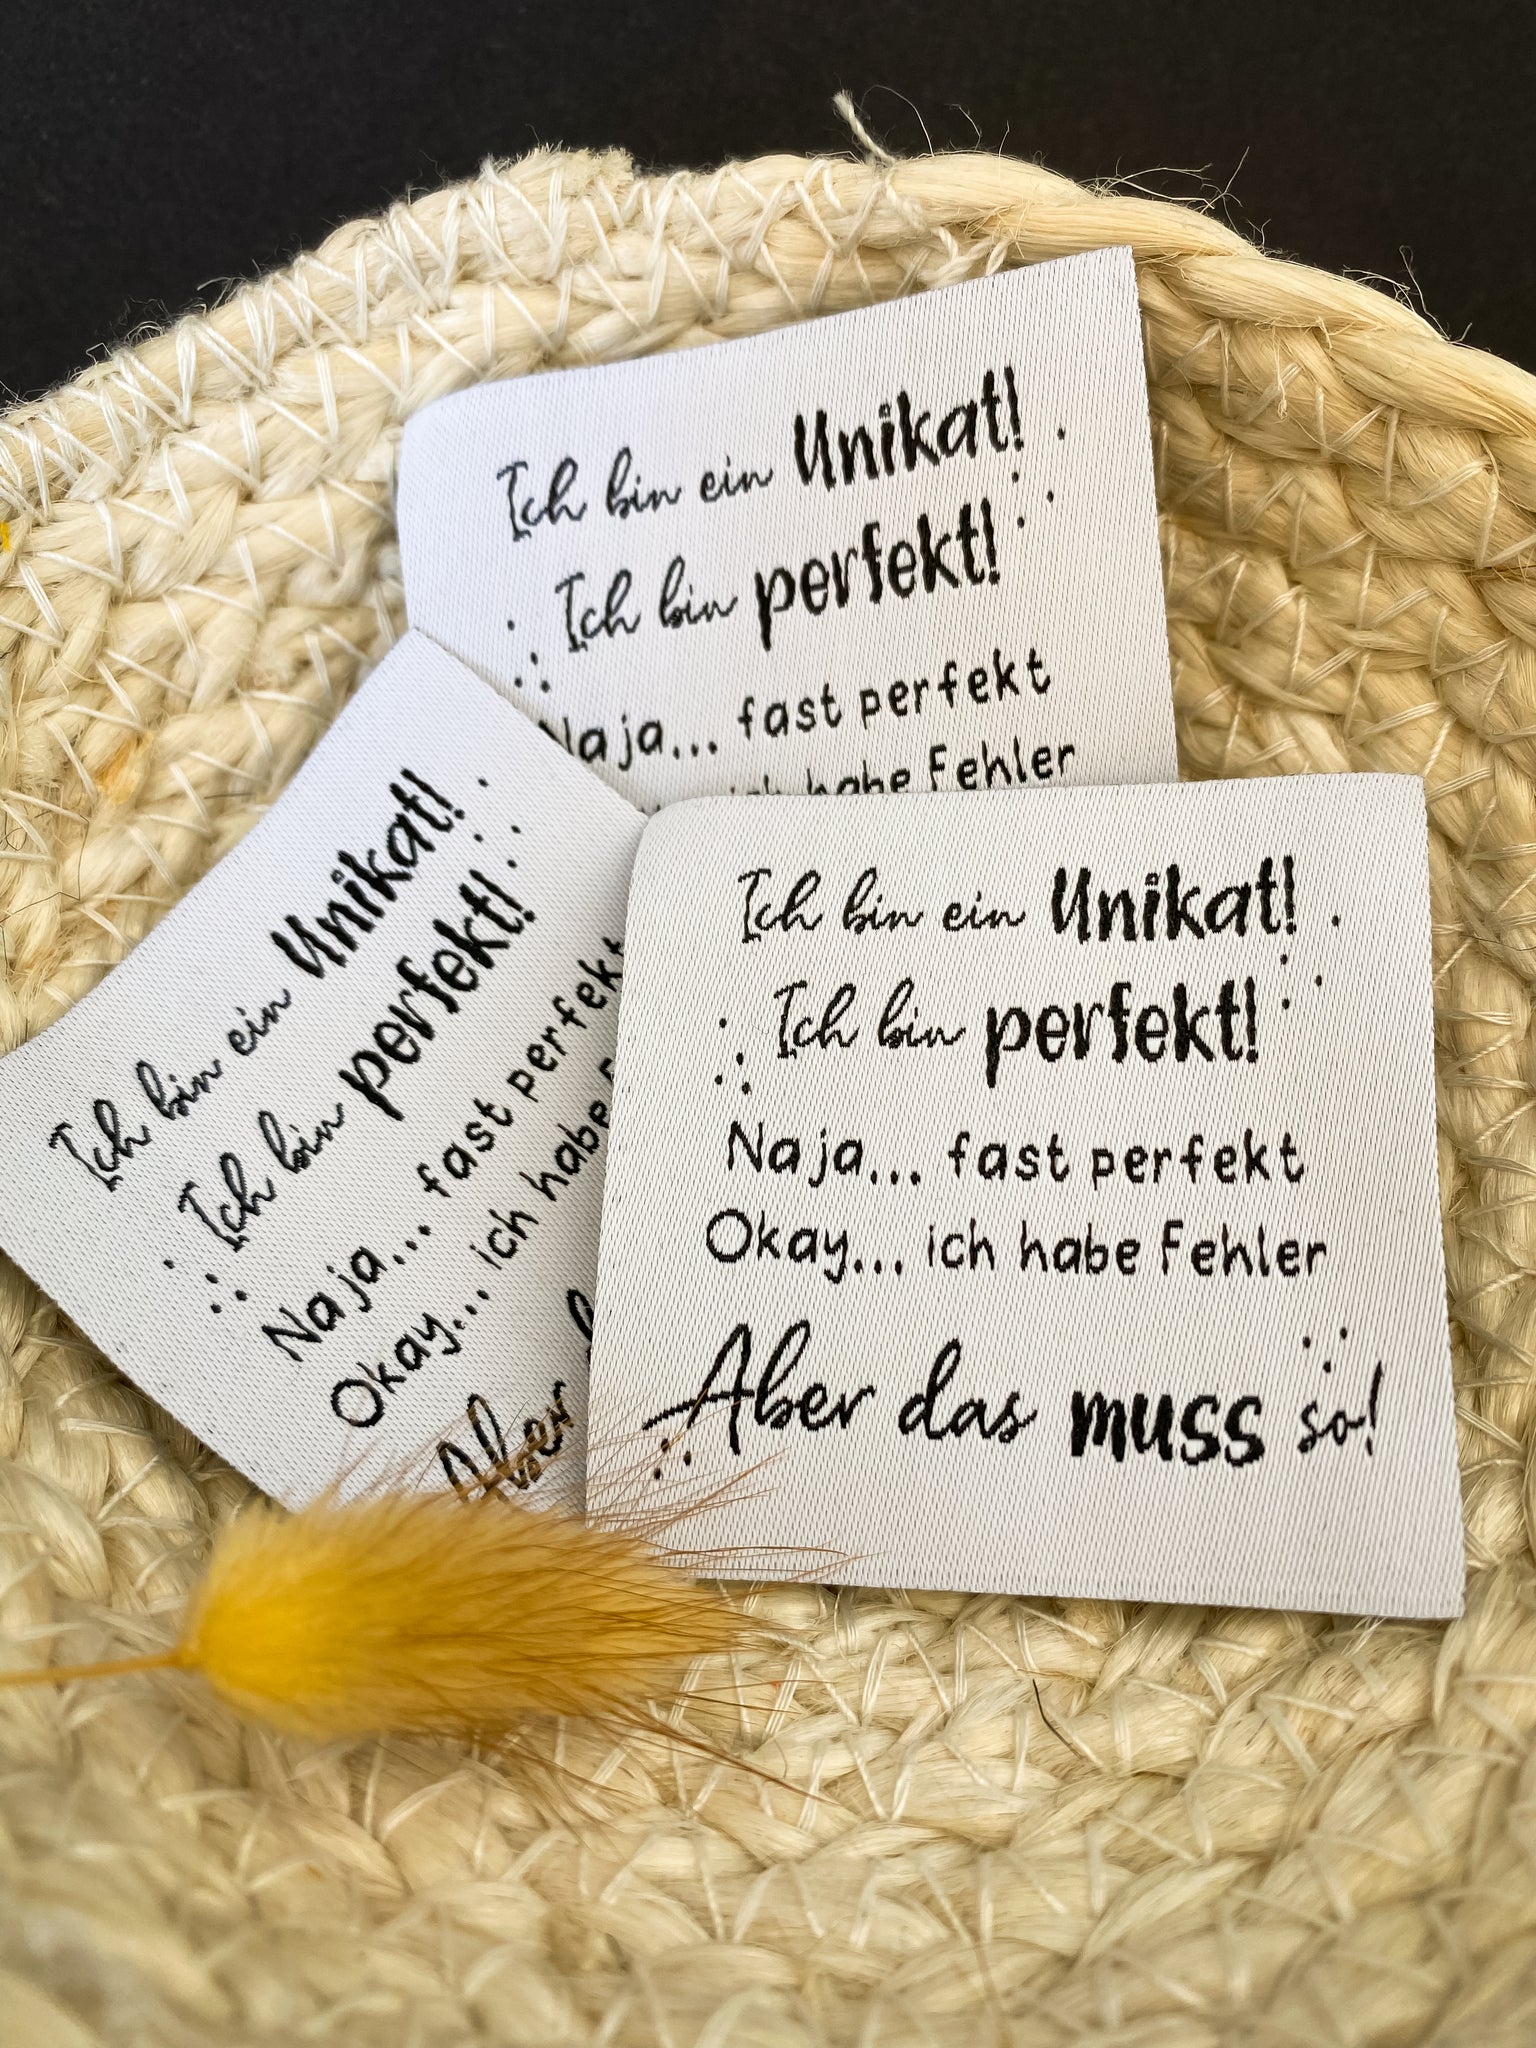 Ich bin ein Unikat!
Ich bin perfekt!
Naja... fast perfekt
ich habe Fehler
Ich bin ein Unikat!
Ich bin perfekt!
Naja... fast perfekt
Okay... ich habe
Aber
Ich bin ein Unikat!
Ich bin perfekt!
Naja... fast perfekt
Okay... ich habe Fehler
Aber das muss so!